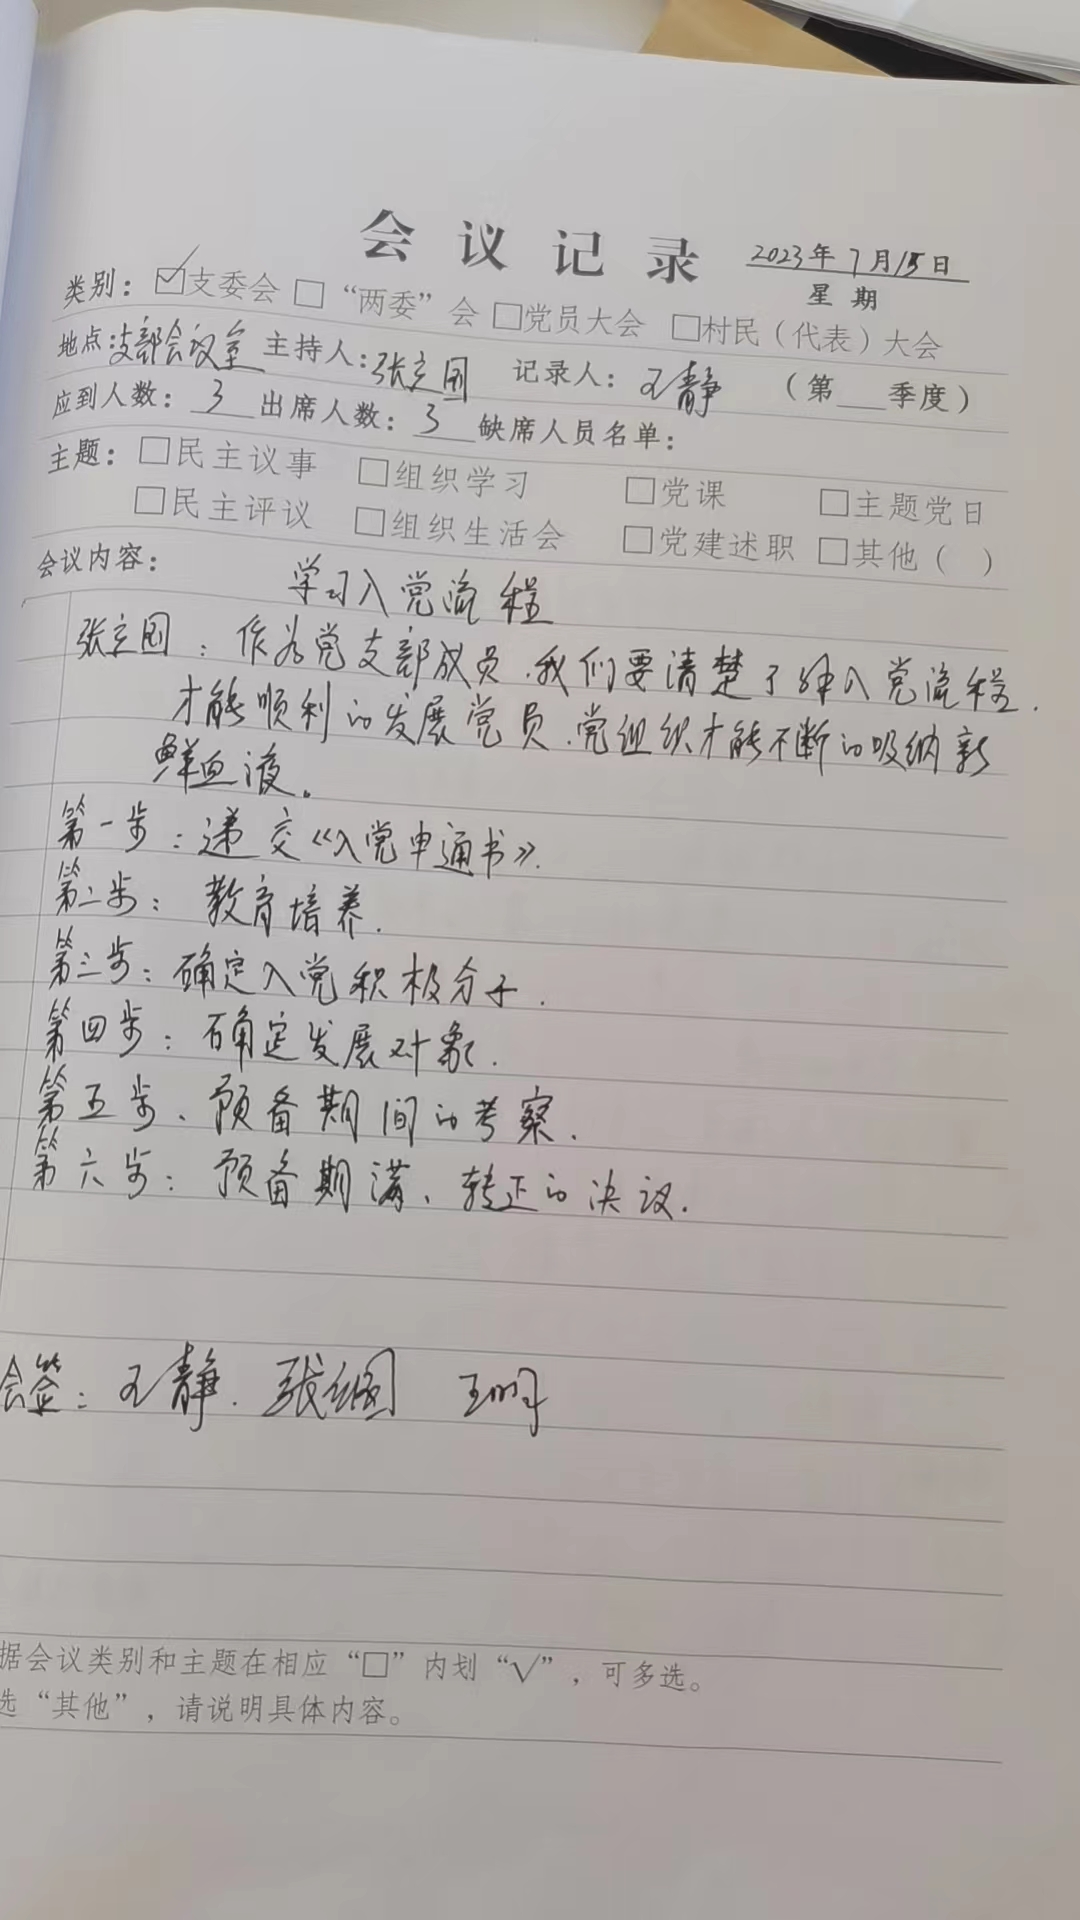 会议记录 2023年7月15日
星期
类别：☑支委会 □“两委”会 □党员大会 □村民（代表）大会
地点：支部会议室 主持人：张立国 记录人：王静 （第 季度）
应到人数：3 出席人数：3 缺席人员名单：
主题：□民主议事 □组织学习 □党课 □主题党日
□民主评议 □组织生活会 □党建述职 □其他（ ）
会议内容：
学习入党流程
张立国：作为党支部成员，我们要清楚了解入党流程，
才能顺利的发展党员，党组织才能不断的吸纳新
鲜血液。
第一步：递交《入党申请书》.
第二步：教育培养.
第三步：确定入党积极分子.
第四步：确定发展对象.
第五步、预备期间的考察.
第六步：预备期满、转正的决议.
会签：王静. 张立国 王明
据会议类别和主题在相应“□”内划“√”，可多选。
选“其他”，请说明具体内容。